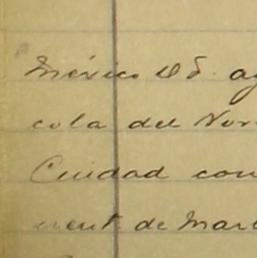 México D F. ag
cola del Nor
Ciudad con
ment. de Mar